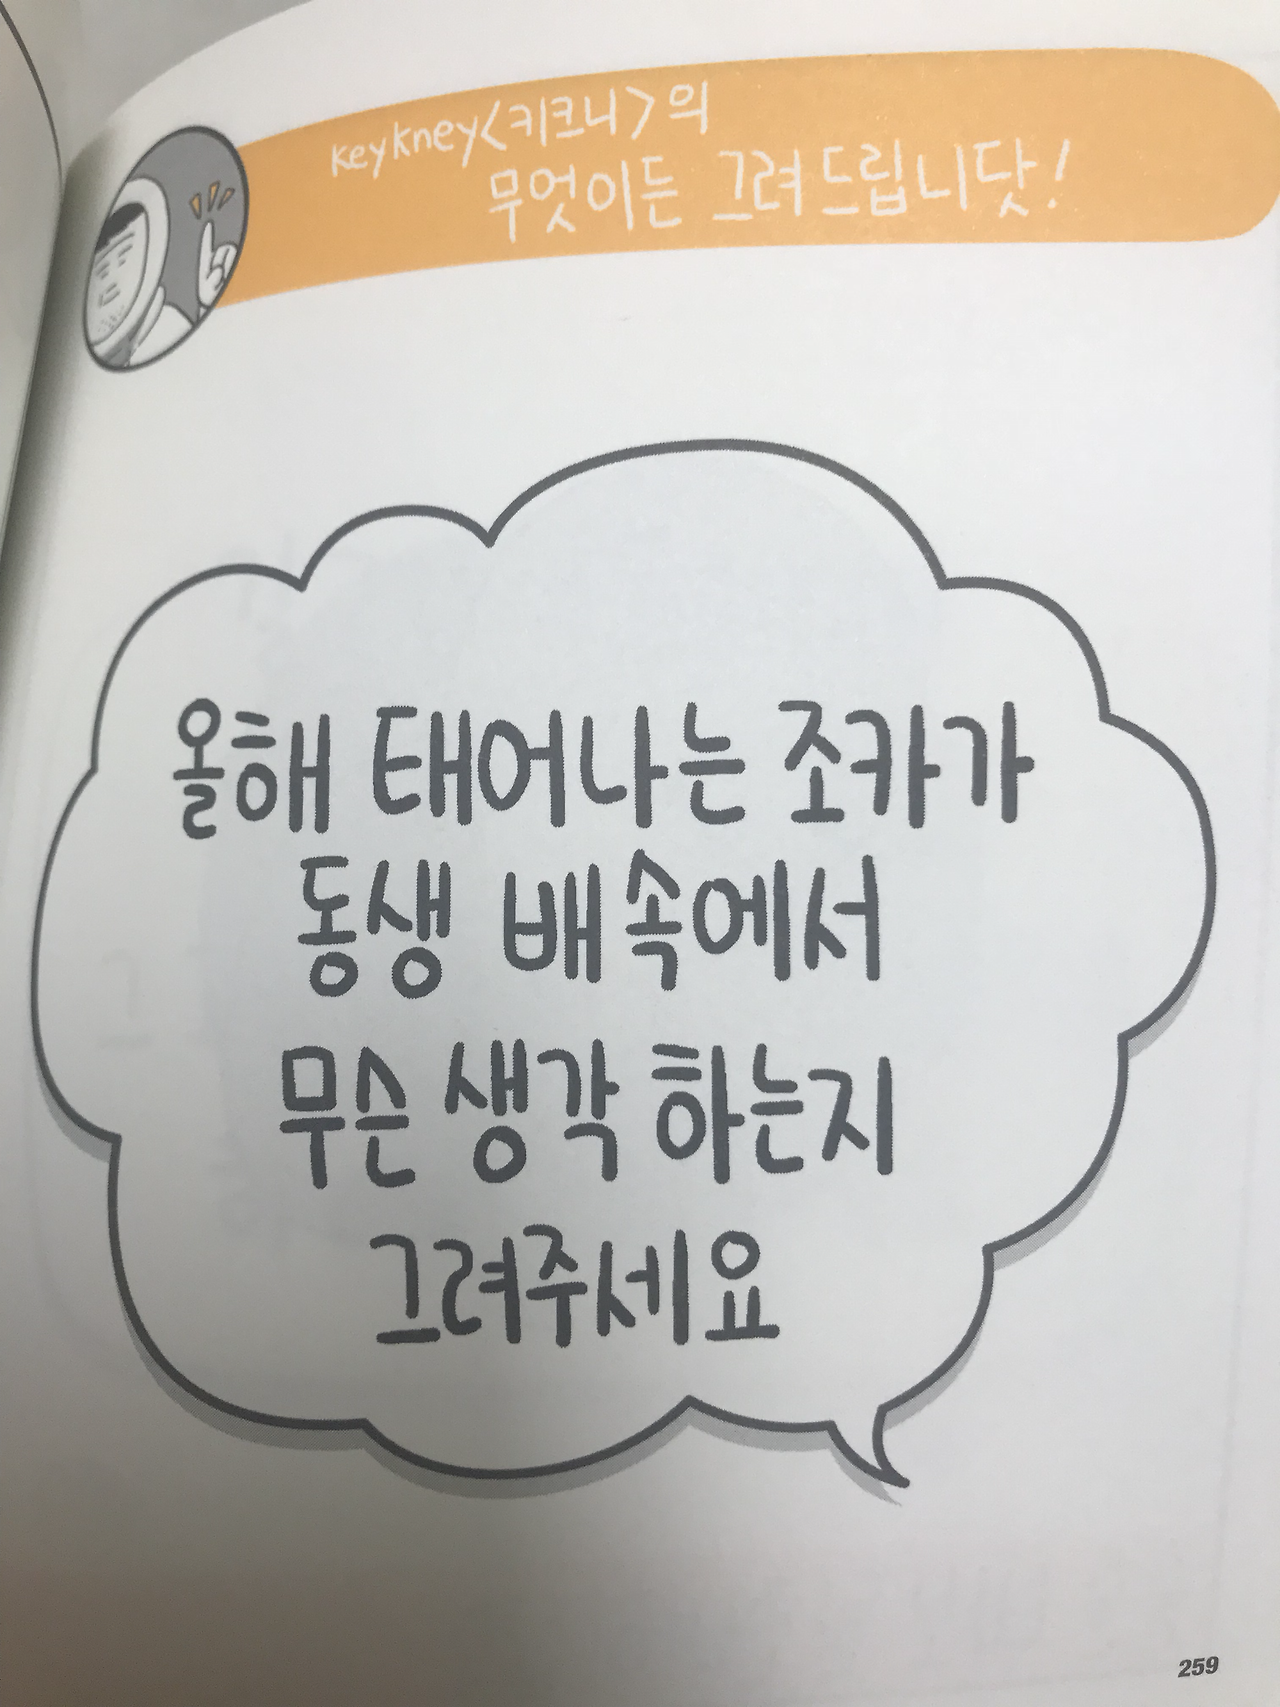 keykney<키크니>의
무엇이든 그려드립니닷!
올해 태어나는 조카가
동생 배속에서
무슨 생각 하는지
그려주세요
259